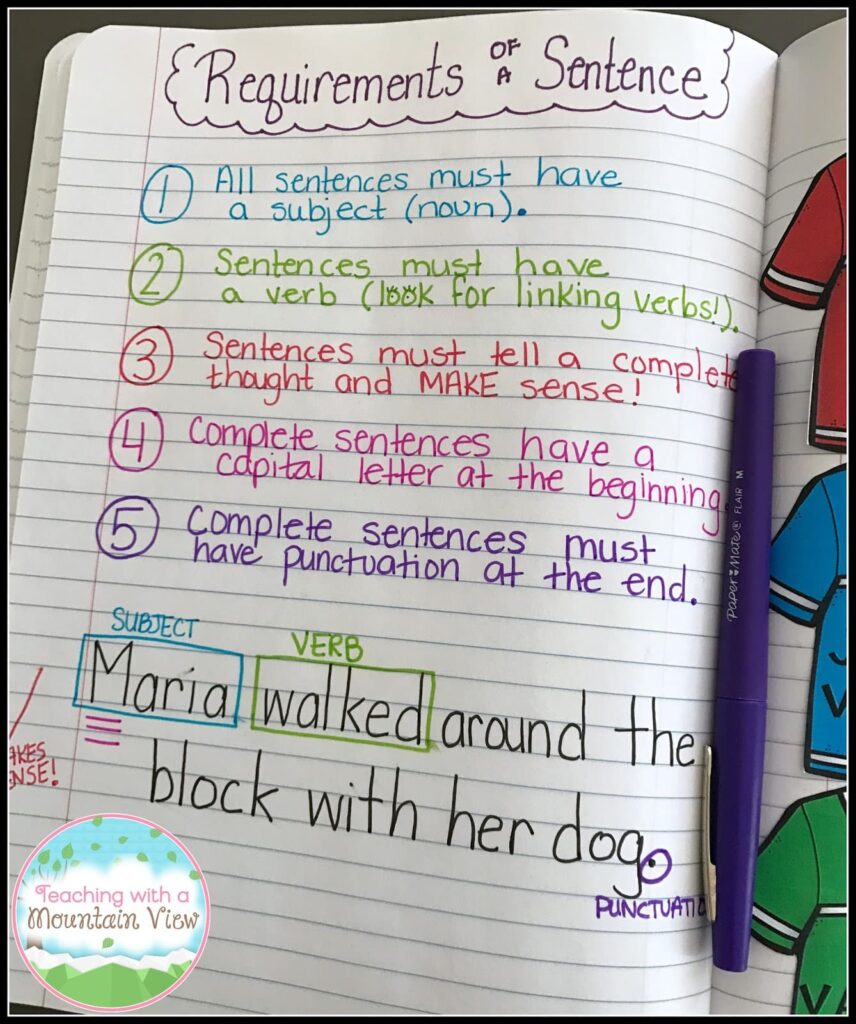 Requirements OF A Sentence
1 All sentences must have
a subject (noun).
2 Sentences must have
a verb (look for linking verbs!).
3 Sentences must tell a complete
thought and MAKE sense!
4 Complete sentences have a
capital letter at the beginning
5 Complete sentences must
have punctuation at the end.
SUBJECT
VERB
Maria walked around the
block with her dog.
PUNCTUATIO
AKES
NSE!
PAPER MATE FLAIR M
Teaching with a
Mountain View
V
VA